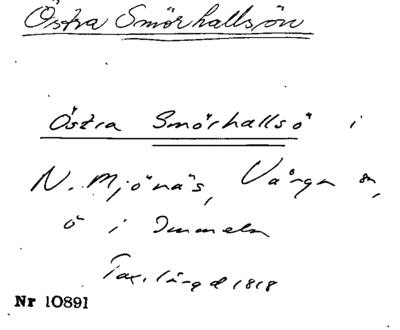 Östra Smörhallsön
Östra Smörhallsö i
N. Mjönäs, Vånga sn,
ö i Immeln
Tax. längd 1818
Nr 10891